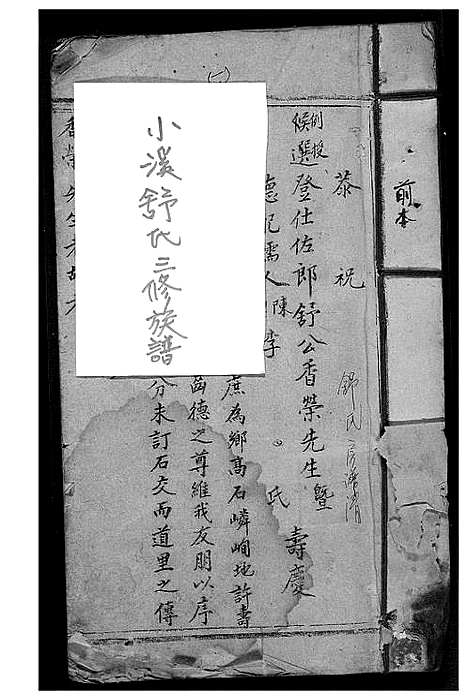 前本
恭祝
例授
候選登仕佐郎舒公香榮先生暨
德配孺人陳李氏
壽慶
庶為鄉高石嶙峋地許壽
齒德之尊維我友朋以序
分未訂石交而道里之傳
小溪舒氏三修族譜